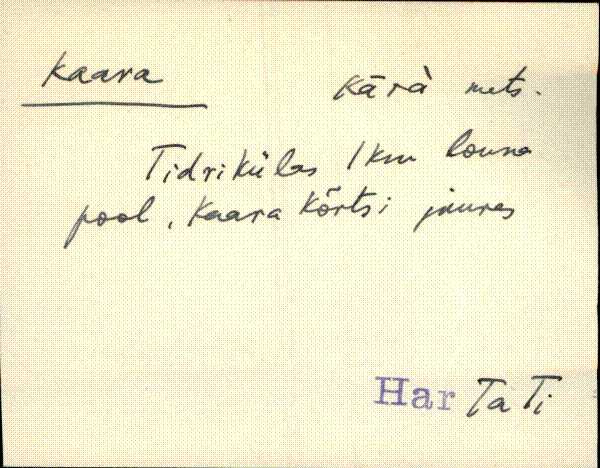 Kaara kārà mets.
Tidrikülas 1 km lõuna
pool, Kaara kõrtsi juures
Har Ta Ti